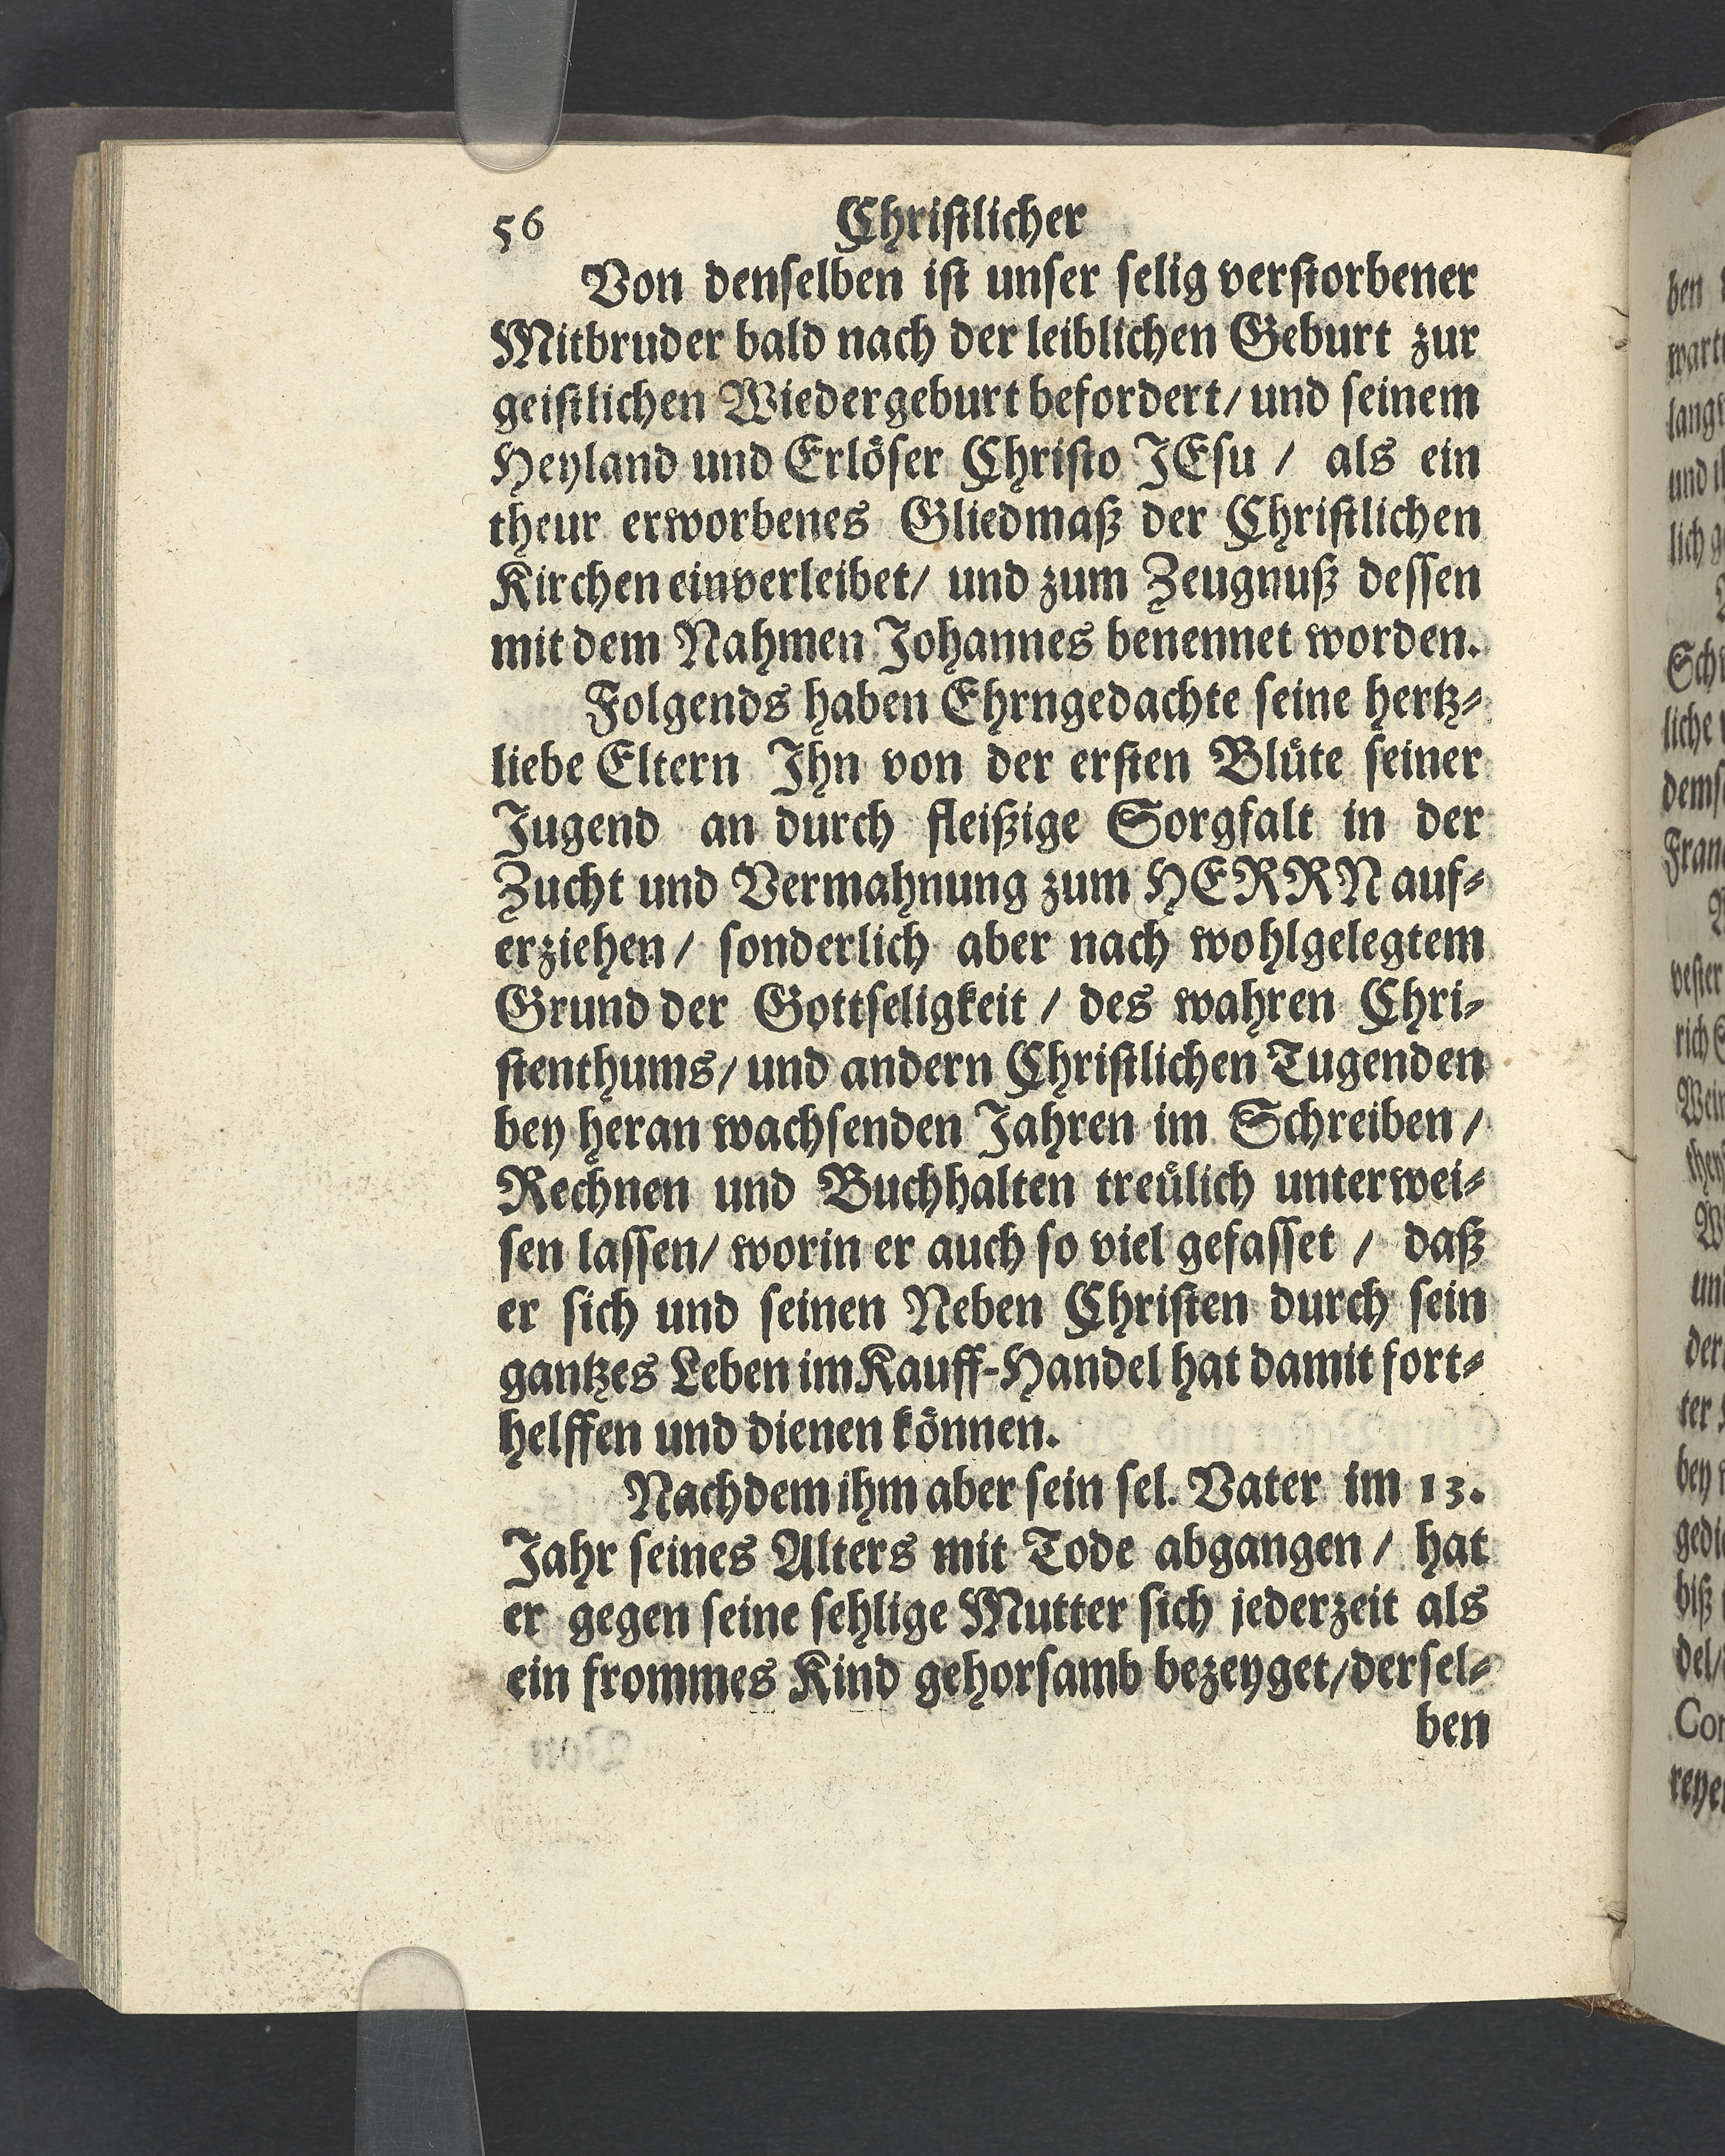 56 Christlicher
Von denselben ist unser selig verstorbener
Mitbruder bald nach der leiblichen Geburt zur
geistlichen Wiedergeburt befordert/ und seinem
Heyland und Erlöser Christo JEsu / als ein
theur erworbenes Gliedmaß der Christlichen
Kirchen einverleibet/ und zum Zeugnuß dessen
mit dem Nahmen Johannes benennet worden.
Folgends haben Ehrngedachte seine hertz-
liebe Eltern Ihn von der ersten Blüte seiner
Jugend an durch fleißige Sorgfalt in der
Zucht und Vermahnung zum HERRN auf-
erziehen/ sonderlich aber nach wohlgelegtem
Grund der Gottseligkeit / des wahren Chri-
stenthums/ und andern Christlichen Tugenden
bey heran wachsenden Jahren im Schreiben /
Rechnen und Buchhalten treülich unterwei-
sen lassen/ worin er auch so viel gefasset / daß
er sich und seinen Neben Christen durch sein
gantzes Leben im Kauff-Handel hat damit fort-
helffen und dienen können.
Nachdem ihm aber sein sel. Vater im 13.
Jahr seines Alters mit Tode abgangen / hat
er gegen seine sehlige Mutter sich jederzeit als
ein frommes Kind gehorsamb bezeyget/dersel-
ben
ben
wart
lang
und
lich
Sch
liche
dem
Fran
vester
rich
Wein
un
der
ter
bey
gedi
biß
del/
Cor
reye